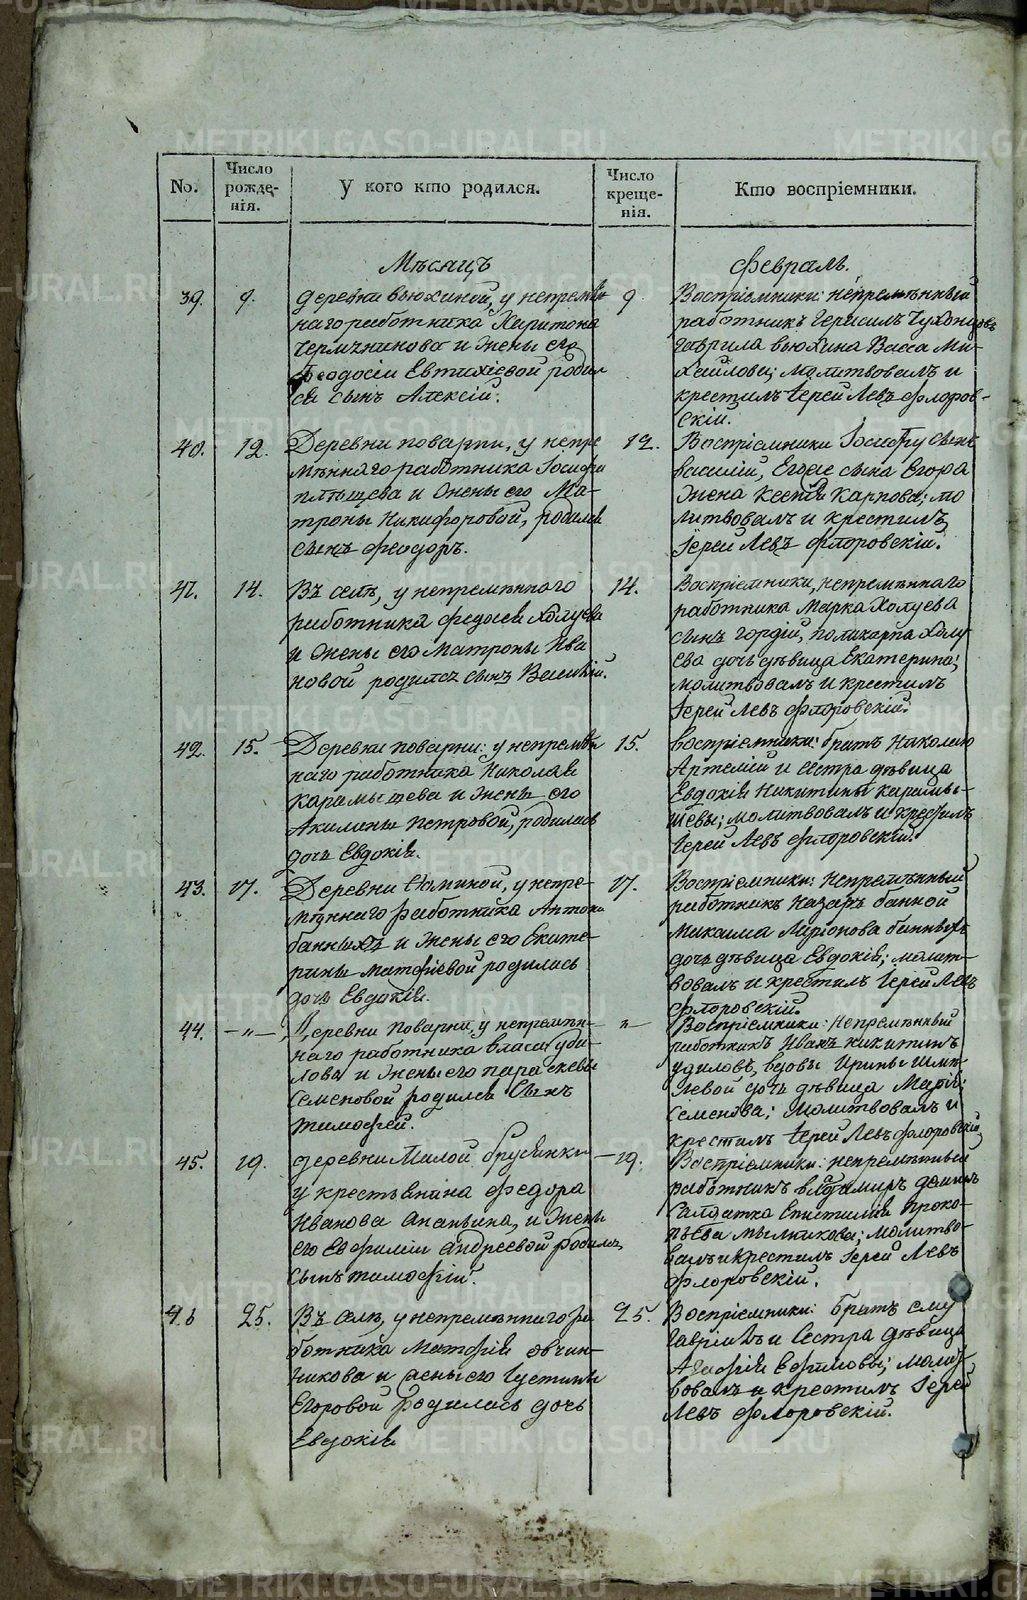 No.
Число рожденія.
У кого кто родился.
Число крещенія.
Кто воспріемники.
Мѣсяцъ
Февраль.
39.
9.
деревни Вьюхиной, у непремѣн
наго работника Харитона
и жены его
Феодосіи Евтихіевой родил
ся сынъ Алексій.
9
Воспріемники: непремѣнный
работникъ Герасимъ
Гаврила Вьюхина Васса Ми-
хайлова; молитвовалъ и
крестилъ Іерей Левъ Флоров-
скій.
40.
12.
Деревни поварни, у непре
мѣннаго работника Іосифа
плѣщева и жены его Ма-
троны Никифоровой, родился
сынъ Феодоръ.
12.
Воспріемники Іосифа сынъ
василій, Егора
жена Ксенія Карпова; мо
литвовалъ и крестилъ
Іерей Левъ Флоровскій.
41.
14.
Въ селѣ, у непремѣннаго
работника Федосея Холуева
и жены его Матроны Ива
новой родился сынъ Василій.
14.
Воспріемники, непремѣннаго
работника Марка Холуева
сынъ Гордій, поликарпа Холу
ева дочь дѣвица Екатерина;
молитвовалъ и крестилъ
Іерей Левъ Флоровскій.
42.
15.
Деревни поварни: у непремѣн
наго работника Николая
карамышева и жены его
Акилины Петровой, родилась
дочь Евдокія.
15.
воспріемники: братъ Николаю
Артемій и сестра дѣвица
Евдокія Никитины карамы-
шевы; молитвовалъ и крестилъ
Іерей Левъ Флоровскій.
43.
17.
Деревни Фоминой, у непре-
мѣннаго работника Антона
банныхъ и жены его Екате-
рины Матфіевой родилась
дочь Евдокія.
17.
Воспріемники: Непремѣнный
работникъ Назаръ банной
Ларіонова банныхъ
дочь дѣвица Евдокія; молит-
вовалъ и крестилъ Іерей Левъ
Флоровскій.
44.
—"—
Деревни поварни, у непремѣн-
наго работника власа уди-
лова и жены его параскевы
Семеновой родился сынъ
тимофей.
"—
Воспріемники: Непремѣнный
работникъ Иванъ никитинъ
удиловъ, вдовы Ирины
дочь дѣвица Марія
Семенова; молитвовалъ и
крестилъ Іерей Левъ Флоровскій
45.
19.
деревни Малой брусянки
у крестьянина Федора
Иванова Ананьина, и жены
его Евфиміи андреевой родился
сынъ тимофій.
19.
Воспріемники: непремѣнный
работникъ владимиръ
Салдатка Епистимія проко-
пьева мыльникова; молитво-
валъ и крестилъ Іерей Левъ
Флоровскій.
46
25.
Въ селѣ, у непремѣннаго ра
ботника Матфія овчин-
никова и жены его Іустины
Егоровой родилась дочь
Евдокія
25.
Воспріемники: братъ ему
Гавріилъ и сестра дѣвица
Агафія Ефимовы; молит-
вовалъ и крестилъ Іерей
Левъ Флоровскій.
METRIKI.GASO-URAL.RU